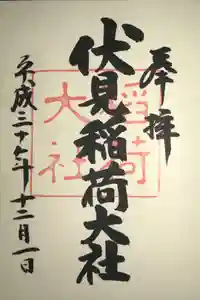 奉拝
伏見稲荷大社
平成三十年十二月一日
稲荷
大社